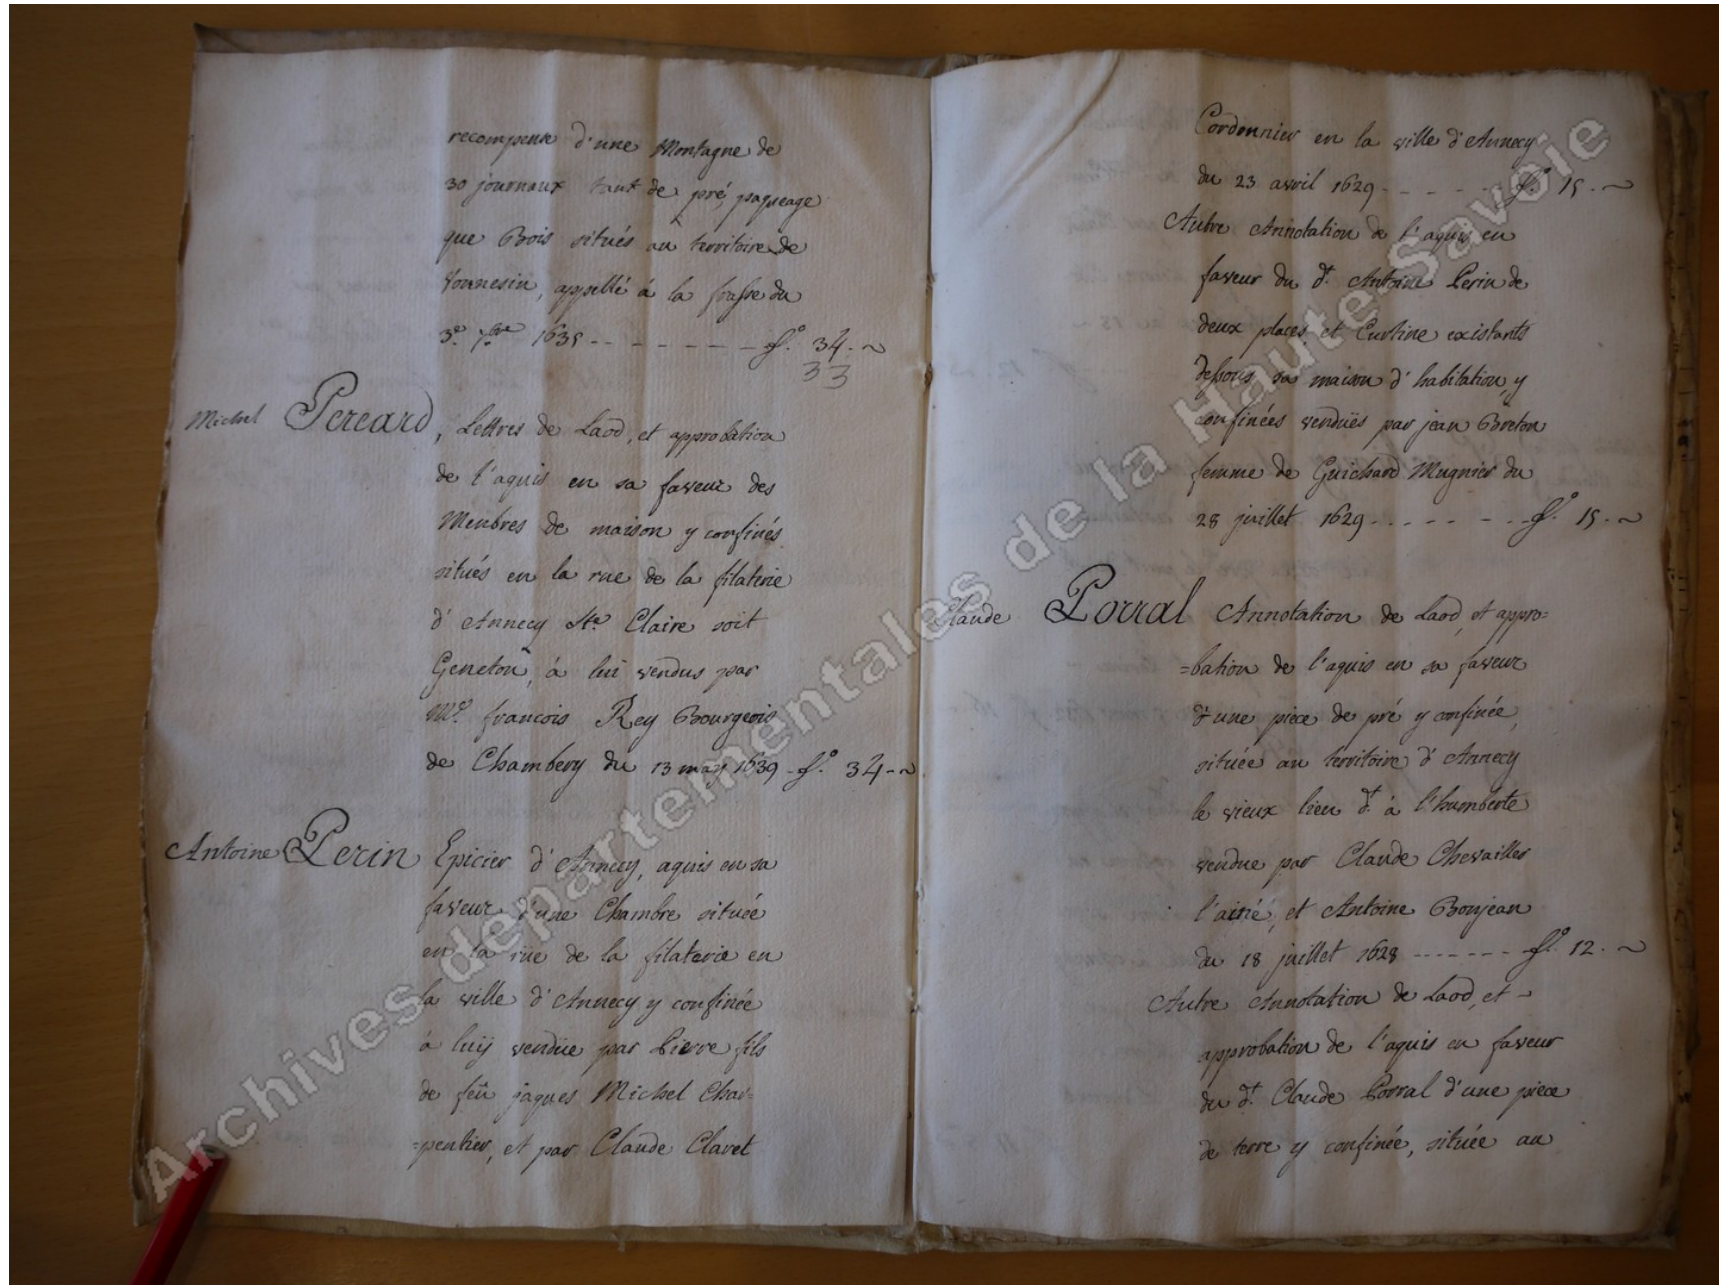 recompense d'une Montagne de
30 journaux tant de pré, paqueage
que Bois situés au territoire de
appellé á la frasse du
3e. 7bre 1635 - - - - - - - fo. 34. ~
33
Michel Pereard, Lettres de Laod, et approbation
de l'aquis en sa faveur des
Menbres de maison y confinés
situés en la rue de la filaterie
d'Annecy Ste. Claire soit
Geneton, á lui vendus par
Me. francois Rey Bourgeois
de Chambery du 13 may 1639 - fo. 34 - ~
Antoine Perin Epicier d'Annecy, aquis en sa
faveur d'une Chambre située
en la rüe de la filaterie en
la ville d'Annecy y confinée
á luÿ vendüe par Pierre fils
de feû jaques Michel Char=
=pentier, et par Claude Clavet
Cordonnier en la ville d'Annecy
du 23 avril 1629 - - - - - fo. 15. ~
Autre Annotation de l'aquis en
faveur du dt. Antoine Perin de
deux places et Curtine existants
dessous sa maison d'habitation, y
confinées vendües par jean Breton
femme de Guichard Mugnier du
28 juillet 1629 - - - - - - - fo. 15. ~
Claude Porral Annotation de Laod, et appro=
=bation de l'aquis en sa faveur
d'une piece de pré y confinée,
située au territoire d'Annecy
le vieux lieu dt. à l'humberte
vendue par Claude Chevallier
l'ainé, et Antoine Bonjean
du 18 juillet 1628 - - - - - - - fo. 12. ~
Autre Annotation de Laod, et ~
approbation de l'aquis en faveur
du dt. Claude Porral d'une piece
de terre y confinée, située au
Archives départementales de la Haute-Savoie